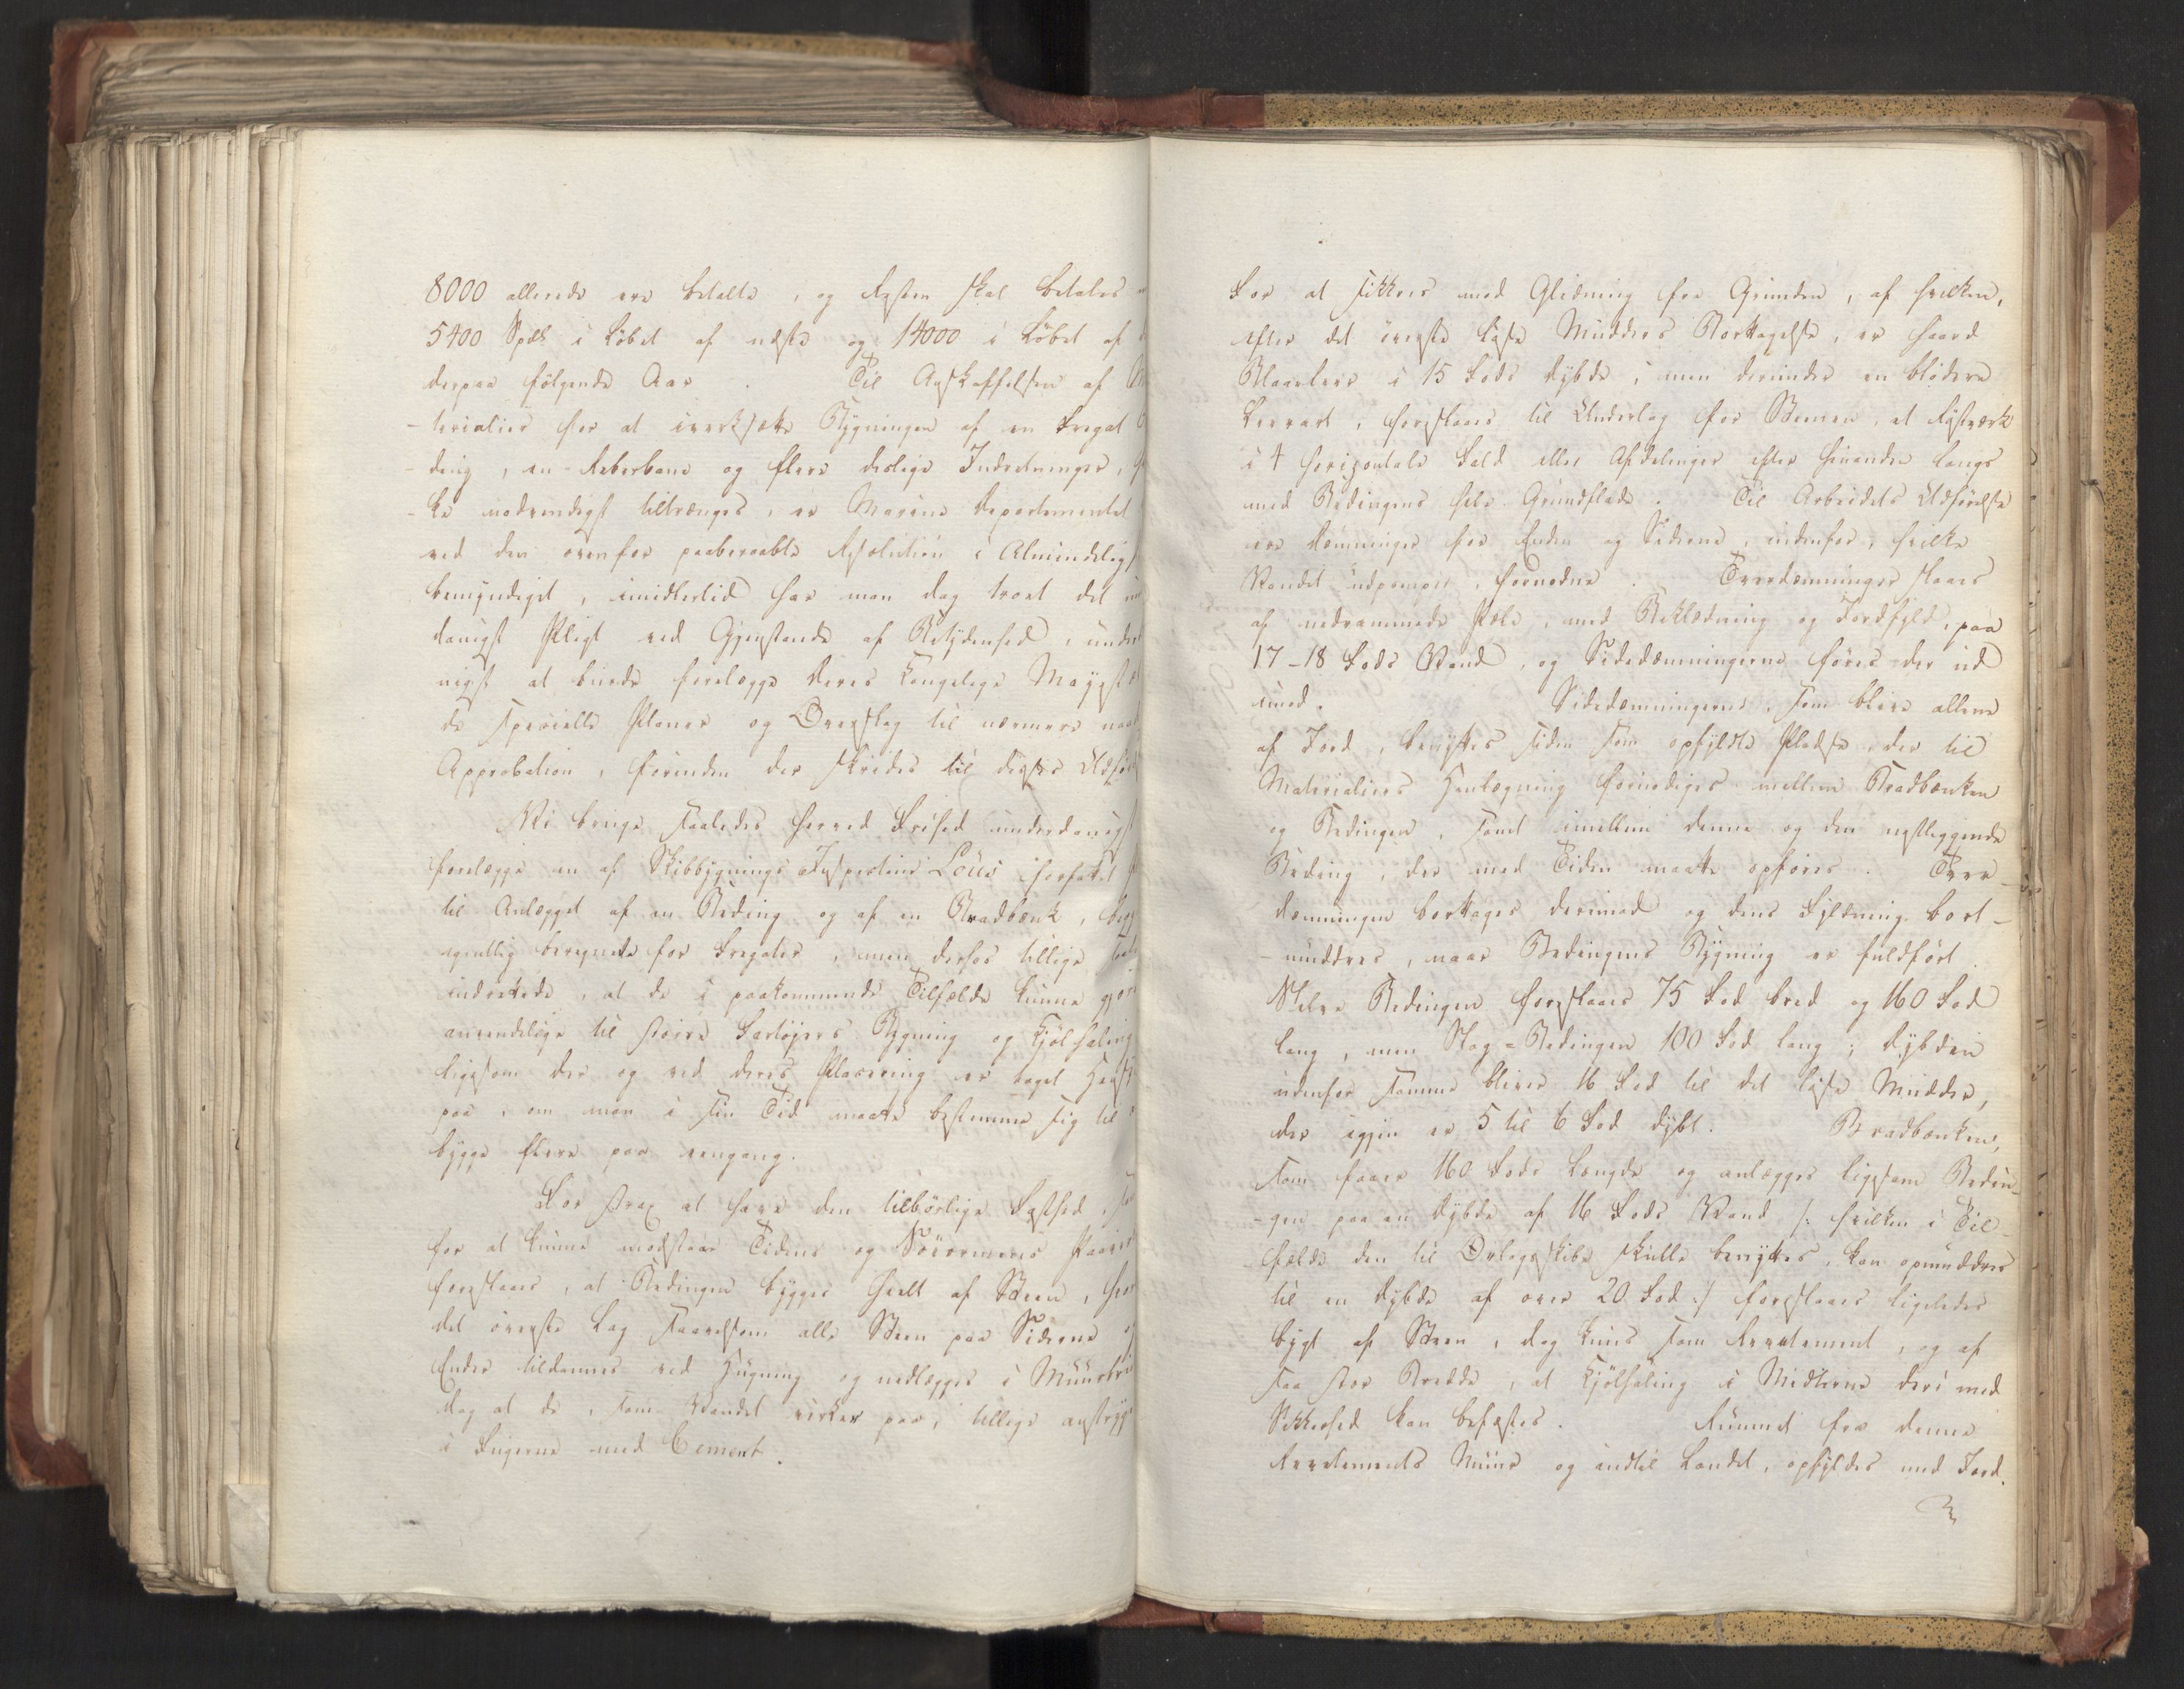 8000 allerede ere betalte, og Resten skal betales
5400 Spdlr i Løbet af næste og 14000 i Løbet af
derpaa følgende Aar. Til Anskaffelsen af
-terialier for at iværksætte Bygningen af en Fregat
-ding, en Reberbane og flere deslige Indretninger,
-ke nødvendigst tiltrænges, er Marine Departementet
ved den ovenfor paaberaabte Resolution i Almindelig
bemyndiget, imidlertid har man dog troet det
danigst Pligt ved Gjenstande af Betydenhed,
nigst at burde forelægge Deres Kongelige Majestæ
de specielle Planer og Overslag til nærmere
Approbation, førinden der skrides til disses Udfør
Vi bringe saaledes herved Frihed underdanigst
forelægge en af Skibbygnings Inspecteur Loüs forfattet
til Anlægget af en Beding og af en Bradbænk,
egentlig beregnede for Fregatter, men derhos tillige
indrettede, at de i paakommende Tilfælde kunne
anvendelige til større Fartøjers Bygning og Kjølhaling
ligesom der og ved deres Placering er taget Hens
paa, om man i sin Tid maatte bestemme sig til
bygge flere paa eengang.
For strax at have den tilbørlige Fasthed,
for at kunne modstaae Tidens og Søeormenes
foreslaaes, at Bedingen bygges heelt af Steen,
det øverste Lag saavelsom alle Steen paa Siderne
Ender tildannes ved Hugning og nedlægges i Muur
dog at de, som Vandet virker paa, tillige
i Fugerne med Cement.
For at sikkres mod Glidning fra Grunden, af hvilken,
efter det øverste løse Mudders Borttagelse, er haard
Blaaleer i 15 Fods Dybde, men derunder en blødere
Leerart, foreslaaes til Underlag for Stenen, et Ristværk
i 4 horizontale Fald eller Afdelinger efter hinanden langs
med Bedingens hele Grundflade. Til Arbeidets Udførelse
ere Dæmninger for Enden og Siderne, indenfor, hvilke
Vandet udpompes, fornødne. Tverdæmninger slaaes
af nedrammede Pæle, med Beklædning og Jordfyld, paa
17-18 Fods Vand, og Sidedæmningerne føres der ud
imod. Sidedæmningerne, som blive allene
af Jord, benyttes siden som opfyldte Pladse, der til
Materialiers Henlægning fornødiges mellem Bradbænken
og Bedingen, samt imellem denne og den næstliggende
Beding, der med Tiden maatte opføres. Tver-
dæmningen borttages derimod og dens Fyldning bort-
-muddres, naar Bedingens Bygning er fuldført.
Selve Bedingen foreslaaes 75 Fod bred og 160 Fod
lang, men Slag-Bedingen 100 Fod lang; Dybden
udenfor samme bliver 16 Fod til det løse Mudder,
der igjen er 5 til 6 Fod dybt. Bradbænken,
som faaer 160 Fods Længde og anlægges ligesom Bedin-
-gen paa en Dybde af 16 Fods Vand /: hvilken i Til-
-fælde den til Orlogsskibe skulle benyttes, kan opmuddres
til en Dybde af over 20 Fod :/ foreslaaes ligeledes
bygt af Steen, dog kuns som Revetement, og af
saa stor Bredde, at Kjølhaling i Midterne deri med
Sikkerhed kan befæstes. Rummet fra denne
Revetements Muur og indtil Landet, opfyldes med Jord.